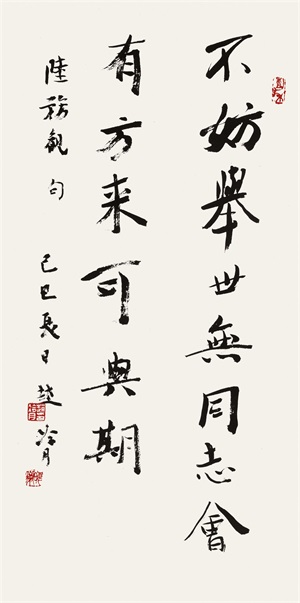 不妨舉世無同志會
有方来可與期
陸務觀句 己巳長日 趙冷月